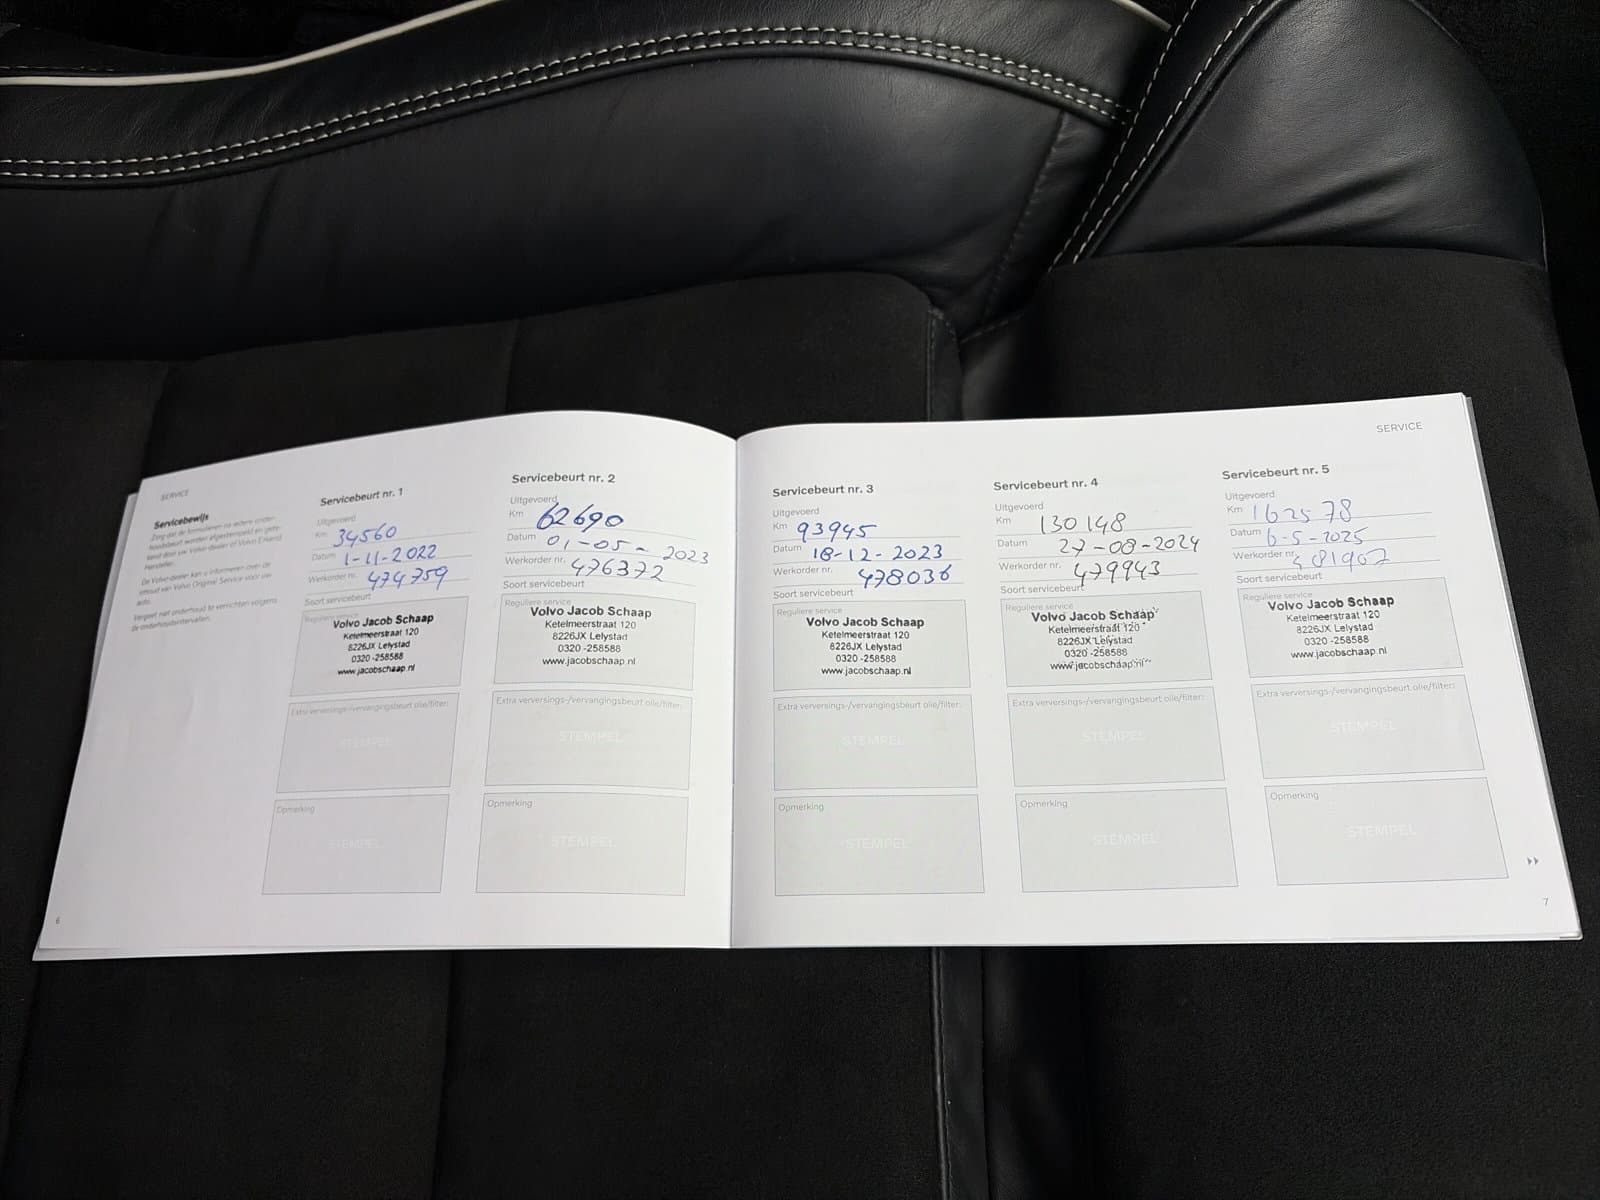 SERVICE
Servicebewijs
Zorg dat de formulieren na iedere onder-
houdsbeurt worden afgestempeld en gete-
kend door uw Volvo-dealer of Volvo Erkend
Hersteller.
De Volvo-dealer kan u informeren over de
inhoud van Volvo Original Service voor uw
auto.
Vergeet niet onderhoud te verrichten volgens
de onderhoudsintervallen.
6
Servicebeurt nr. 1
Uitgevoerd
Km 34560
Datum 1-11-2022
Werkorder nr. 474759
Soort servicebeurt
Reguliere service
Volvo Jacob Schaap
Ketelmeerstraat 120
8226JX Lelystad
0320 -258588
www.jacobschaap.nl
Extra verversings-/vervangingsbeurt olie/filter:
STEMPEL
Opmerking
STEMPEL
Servicebeurt nr. 2
Uitgevoerd
Km 62690
Datum 01-05-2023
Werkorder nr. 476372
Soort servicebeurt
Reguliere service
Volvo Jacob Schaap
Ketelmeerstraat 120
8226JX Lelystad
0320 -258588
www.jacobschaap.nl
Extra verversings-/vervangingsbeurt olie/filter:
STEMPEL
Opmerking
STEMPEL
SERVICE
Servicebeurt nr. 3
Uitgevoerd
Km 93945
Datum 18-12-2023
Werkorder nr. 478036
Soort servicebeurt
Reguliere service
Volvo Jacob Schaap
Ketelmeerstraat 120
8226JX Lelystad
0320 -258588
www.jacobschaap.nl
Extra verversings-/vervangingsbeurt olie/filter:
STEMPEL
Opmerking
STEMPEL
Servicebeurt nr. 4
Uitgevoerd
Km 130148
Datum 27-08-2024
Werkorder nr. 479943
Soort servicebeurt
Reguliere service
Volvo Jacob Schaap
Ketelmeerstraat 120
8226JX Lelystad
0320 -258588
www.jacobschaap.nl
Extra verversings-/vervangingsbeurt olie/filter:
STEMPEL
Opmerking
STEMPEL
Servicebeurt nr. 5
Uitgevoerd
Km 162578
Datum 6-5-2025
Werkorder nr. 481967
Soort servicebeurt
Reguliere service
Volvo Jacob Schaap
Ketelmeerstraat 120
8226JX Lelystad
0320 -258588
www.jacobschaap.nl
Extra verversings-/vervangingsbeurt olie/filter:
STEMPEL
Opmerking
STEMPEL
7